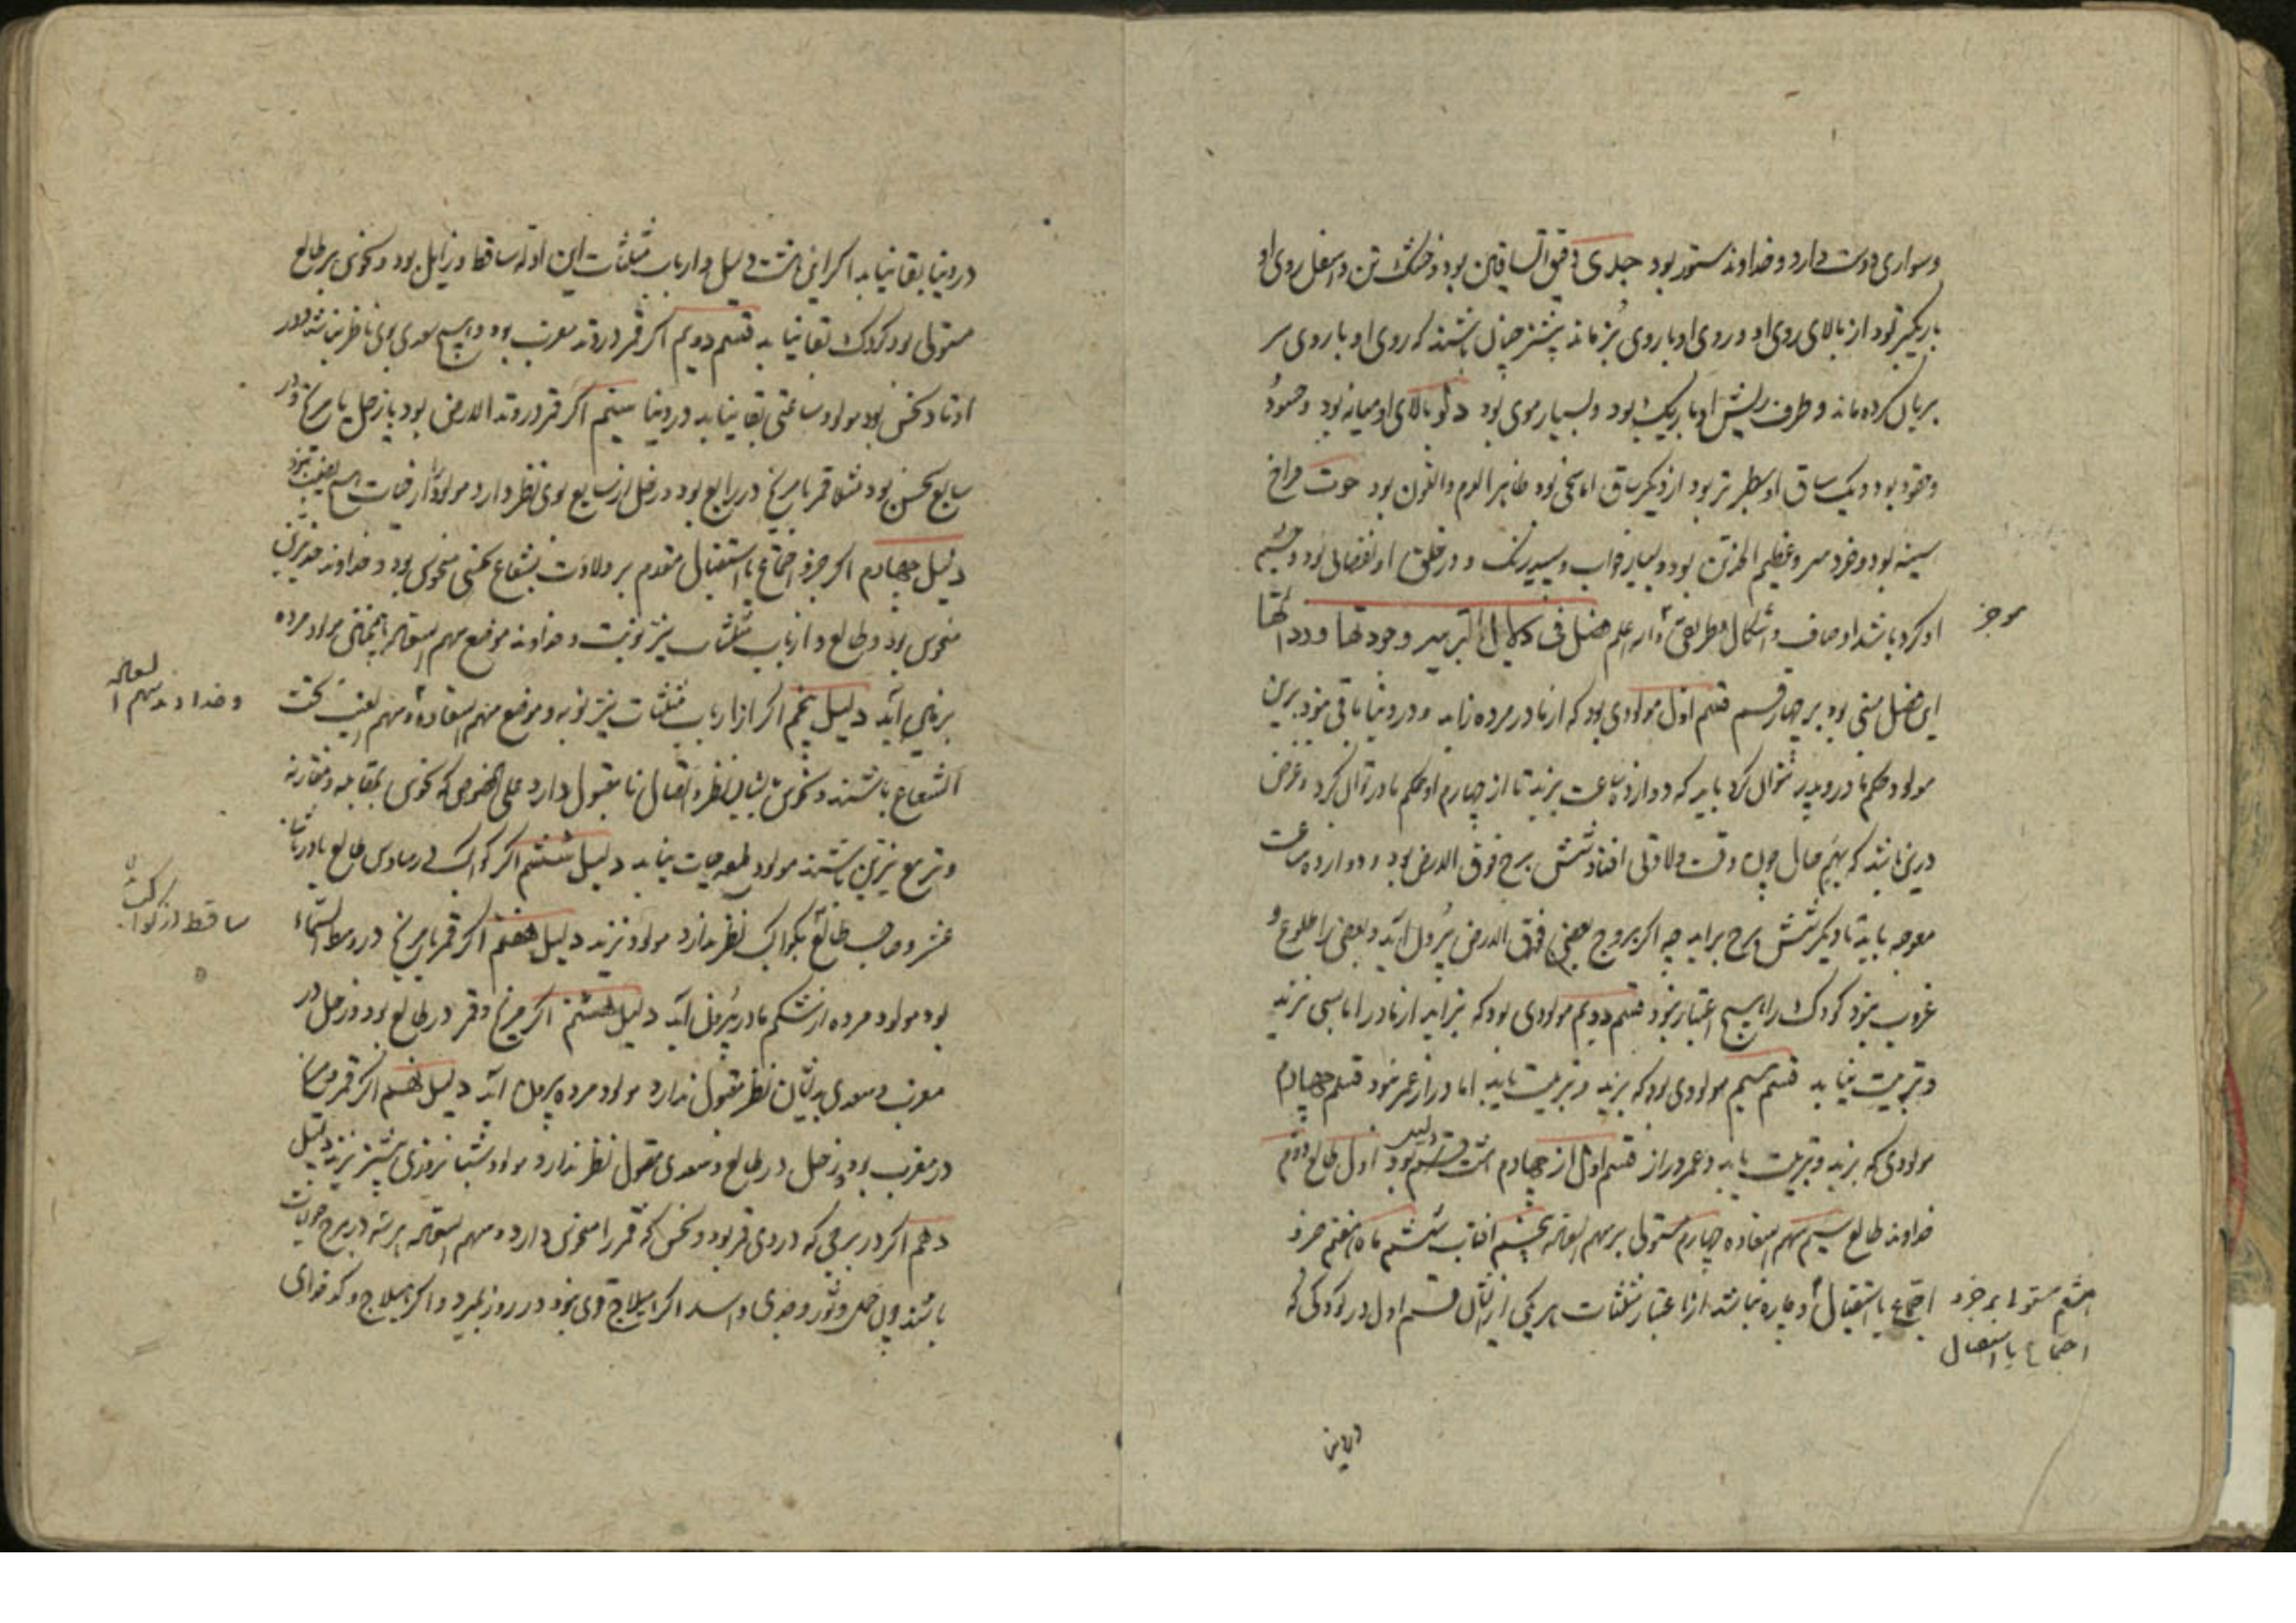 وسواری دوست دارد و خداوند ستور بود جدی دقیق الساقین بود و خشک تن و اسفل روی او
باریکتر بود از بالای روی او و روی او با روی بز ماند بیشتر چنان باشند که روی او با روی سر
بریان کرده ماند و طرف ریش او باریک بود و بسیار موی بود دلو بالای او میانه بود و حسود
و حقود بود و یک ساق او سطبرتر بود از دیگر ساق اما سخی بود طاهر الدم و اللون بود حوت فراخ
سینه بود و خرد سر و عظیم البدن بود و بسیار خواب و سپید رنگ و در خلق او نقصانی بود و چشم
او گرد باشد اوصاف و اشکال بطریق والله اعلم فصل فی دلایل التربیه و وجودتها و رداتها
موجز
این فصل مبنی بود بر چهار قسم قسم اول مولودی بود که از مادر مرده زاید و در دنیا باقی نبود برین
مولود حکم مادر و پدر نتوان کرد باید که دوازده ساعت بزید تا از چهارم او حکم مادر توان کرد و غرض
درین باشد که بهمه حال چون وقت ولادتی افتد شش برج فوق الارض بود و دوازده ساعت
معوجه باید تا دیگر شش برج براید چه اگر بروج بعضی فوق الارض بیرون آید و بعضی را طلوع و
غروب نبود کودک را هیچ اعتبار نبود قسم دویم مولودی بود که بزاید از مادر اما بسی نزید
و تربیت نیابد قسم سیم مولودی بود که بزید و تربیت یابد اما دراز عمر نبود قسم چهارم
مولودی که بزید و تربیت یابد و عمر دراز قسم اول از چهارم هشت دلیل بود اول طالع دوم
خداوند طالع سیم سهم السعاده چهارم مستولی بر سهم السعاده پنجم افتاب ششم ماه هفتم جزو
اجتماع یا استقبال و چاره نباشد از اعتبار مثلثات هر یکی ازیشان قسم اول در کودکی که
هشتم مستولی بر جزو
اجتماع یا استقبال
در دنیا بقا نیابد اگر این هشت دلیل و ارباب مثلثات این ادله ساقط و زایل بود و نحوس بر طالع
مستولی بود کودک بقا نیابد قسم دویم اگر قمر در وتد مغرب بود و هیچ سعدی بوی ناظر نباشد و در
اوتاد نحس بود مولود ساعتی بقا نیابد در دنیا سیم اگر قمر در وتد الارض بود با زحل یا مریخ و در
سابع نحس بود مثلا قمر با مریخ در رابع بود و زحل از سابع بوی نظر دارد مولود را از حیات
دلیل چهارم اگر جزو اجتماع یا استقبال مقدم بر ولادت بشعاع نحسی منحوس بود و خداوند
منحوس بود و طالع و ارباب مثلثات نیر نوبت و خداوند موضع سهم السعاده مولود مرده
بزمین آید دلیل پنجم اگر ارباب مثلثات نیر نوبه و موضع سهم السعاده و سهم الغیب تحت
و خداوند سهم السعاده
الشعاع باشند و نحوس بایشان نظر و اتصال نامقبول دارد علی الخصوص که نحوس بمقابله و مقارنه
و تربیع نیرین باشند مولود طعم حیات نیابد دلیل ششم اگر کواکب در سادس طالع یا در ثانی
عشر و صاحب طالع بکواکب نظر ندارد مولود نزید دلیل هفتم اگر قمر با مریخ در وسط السماء
ساقط از کواکب
بود مولود مرده از شکم مادر بیرون آید دلیل هشتم اگر مریخ و قمر در طالع بود و زحل در
مغرب و سعدی بدیشان نظر مقبول ندارد مولود مرده بیرون آید دلیل نهم اگر قمر
در مغرب بود و زحل در طالع و سعدی مقبول نظر ندارد مولود شبانروزی بیشتر نزید دلیل
دهم اگر در برجی که در وی قمر بود و نحس که قمر را منحوس دارد و سهم السعاده هر سه در برج
باشند چون حمل و ثور و جدی و اسد اگر هیلاج قوی نبود در روز بمیرد و اگر هیلاج و کدخدای
در دنیا